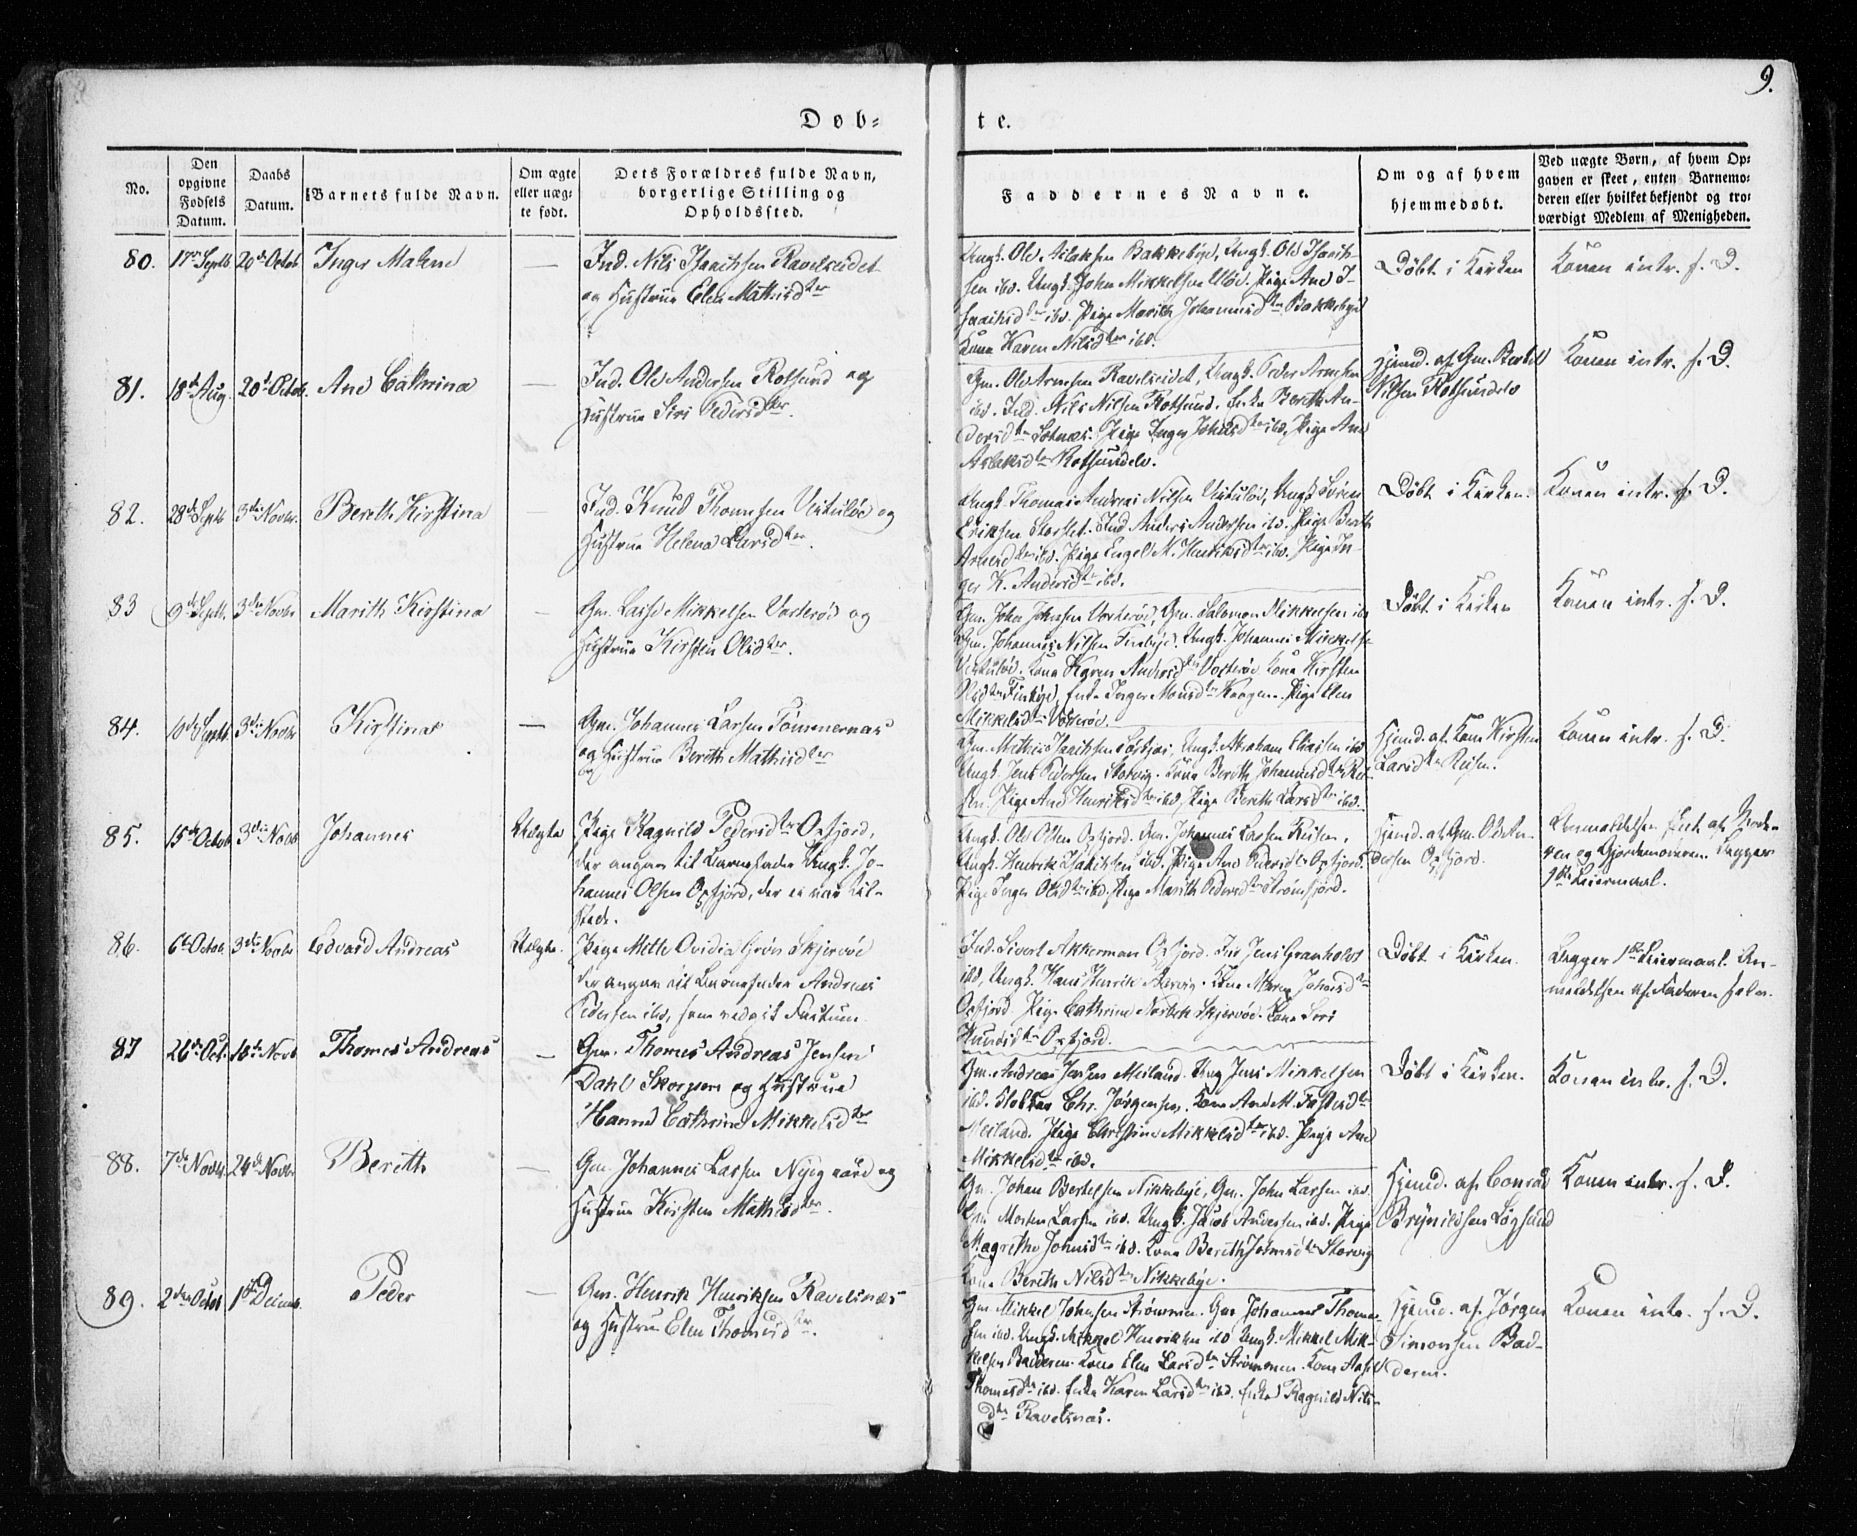 9.
Døb=
te.
No.
Den opgivne Fødsels Datum.
Daabs Datum.
Barnets fulde Navn.
Om ægte eller uæg- te født.
Dets Forældres fulde Navn, borgerlige Stilling og Opholdssted.
Faddernes Navne.
Om og af hvem hjemmedøbt.
Ved uægte Børn, af hvem Op- gaven er skeet, enten Barnemo- deren eller hvilket bekjendt og tro- værdigt Medlem af Menigheden.
80. 17de Septb 20de Octob Inger Malene —
Ind. Nils Isaachsen Ravelseidet
og Hustrue Elen Mathisdter
Ungk. Ole Aslaksen Bakkebye, Ungk. Ole Isaach-
sen ibd. Ungk. John Mikkelsen Uløe. Pige Ane I-
saachsdter ibd. Pige Marith Johannesdter Bakkebye
Kone Karen Nilsdter ibd.
Døbt i Kirken
Konen intr. f. D.
81. 18de Aug. 20de Octob. Ane Cathrina —
Ind. Ole Andersen Rotsund og
Hustrue Siri Pedersdter.
Gm. Ole Arnesen Ravelseidet, Ungk. Peder Arnesen
ibd. Ind. Nils Nilsen Rotsund. Enke Berith An-
dersdter Sotnæs. Pige Inger Johnsdter ibd. Pige Ane
Aslaksdter Rotsundelv.
Hjemd. af Gm. Berthel
Nilsen Rotsundelv
Konen intr. f. D.
82. 28de Septb 3die Novbr. Berith Kirstina —
Ind. Knud Thomesen Vinkuløe og
Hustrue Helena Larsdter.
Ungk. Thomas Andreas Nilsen Ungk. Søren
Eriksen Storslet. Ind Anders Andersen ibd. Pige Berith
Arnesdter ibd. Pige Engel M. Henriksdter ibd. Pige In-
ger K. Andersdter ibd.
Døbt i Kirken.
Konen intr. f. D.
83 9de Septb. 3die Novbr Marith Kirstina —
Gm. Lasse Mikkelsen Vorterøe og
Hustrue Kirsten Olsdter.
Gm. John Johnsen Vorterøe, Gm. Salomon Mikkelsen ibd
Gm. Johannes Nilsen Ungk. Johannes Mikkelse
Kone Karen Andersdter Vorterøe Kone Kirsten
Enke Inger Monsdter Pige Elen
Mikkelsdter Vorterøe.
Døbt i Kirken
Konen intr. f. D.
84. 10de Septb. 3die Novbr Kirstina —
Gm. Johannes Larsen Tømmernæs
og Hustrue Berith Mathisdter
Gm. Mathis Isaachsen Ungk. Abraham Eliassen ibd
Ungk. Jens Pedersen Storvig. Kone Berith Johannesdter Rei-
sen. Pige Ane Henriksdter ibd, Pige Berith Larsdter ibd.
Hjemd. af Kone Kirsten
Larsdter Reisen.
Konen intr. f. D.
85. 15de Octob 3die Novb Johannes Uægte
Pige Ragnild Pedersdter Oxfjord,
der angav til Barnefader Ungk. Jo-
hannes Olsen Oxfjord, der ei var til-
stede.
Ungk. Ole Olsen Oxfjord. Gm. Johannes Larsen Reisen,
Ungk. Henrik Isachsen ibd. Pige Ane Pedersdter Oxfjord.
Pige Inger Olsdter ibd Pige Marith Pedersdter Strømfjord.
Hjemd. af Gm. Ole An-
dersen Oxfjord.
Anmeldelsen skeet af Mode-
ren og Gjordemoderen. Begges
1ste Leiermaal.
86. 6te Octob. 3die Novbr Edvard Andreas Uægte.
Pige Mette Ovidia Grøn Skjervøe
der angav til Barnefader Andreas
Pedersen ibd, som vedgik Factum.
Ind. Sivert Akkerman Oxfjord. Ind Jens Granholdt
ibd, Ungk. Hans Henrik Kone Maren Johnsdter
Oxfjord. Pige Cathrine Skjervøe. Kone Siri
Knudsdter Oxfjord.
Døbt i Kirken.
Begges 1ste Leiermaal. An-
meldelsen af Faderen selv.
87 26de Oct. 10de Novb Thomes Andreas —
Gm. Thomes Andreas Jensen
Dahl Skorpen og Hustrue
Hanna Cathrina Mikkelsdter
Gm. Andreas Jensen Meiland. Ung Jens Mikkelsen
ibd. Klokker Chr. Jørgensen. Kone Ane M.
Meiland. Pige Christine Mikkelsdter ibd. Pige Ane
Mikkelsdter ibd.
Døbt i Kirken.
Konen intr. f. D.
88. 7de Novbr. 24de Novbr. Berith —
Gm. Johannes Larsen Nyegaard og
Hustrue Kirsten Mathisdter.
Gm. Johan Bertelsen Nikkebye, Gm. John Larsen ibd.
Gm. Morten Larsen ibd. Ungk. Jacob Andersen ibd. Pige
Magrethe Johnsdter ibd. Kone Berith Johnsdter Storvig
Kone Berith Nilsdter Nikkebye.
Hjemd. af Conrad
Brynildsen Løgsund
Konen intr. f. D.
89. 2den Octob 1ste Decemb. Peder —
Gm. Henrik Henriksen Ravelsnæs
og Hustrue Elen Thomesdter.
Gm. Mikkel Johnsen Strømmen. Gm Johannes Thome-
sen ibd. Ungk. Mikkel Henriksen ibd Ungk. Mikkel Mik-
kelsen Badderen. Kone Elen Larsdter Strømmen. Kone
Thomesdter ibd. Enke Karen Larsdter ibd. Enke Ragnild Nils-
dter Ravelsnæs.
Hjemd. af Jørgen
Simonsen Bad-
deren.
Konen intr. f. D.